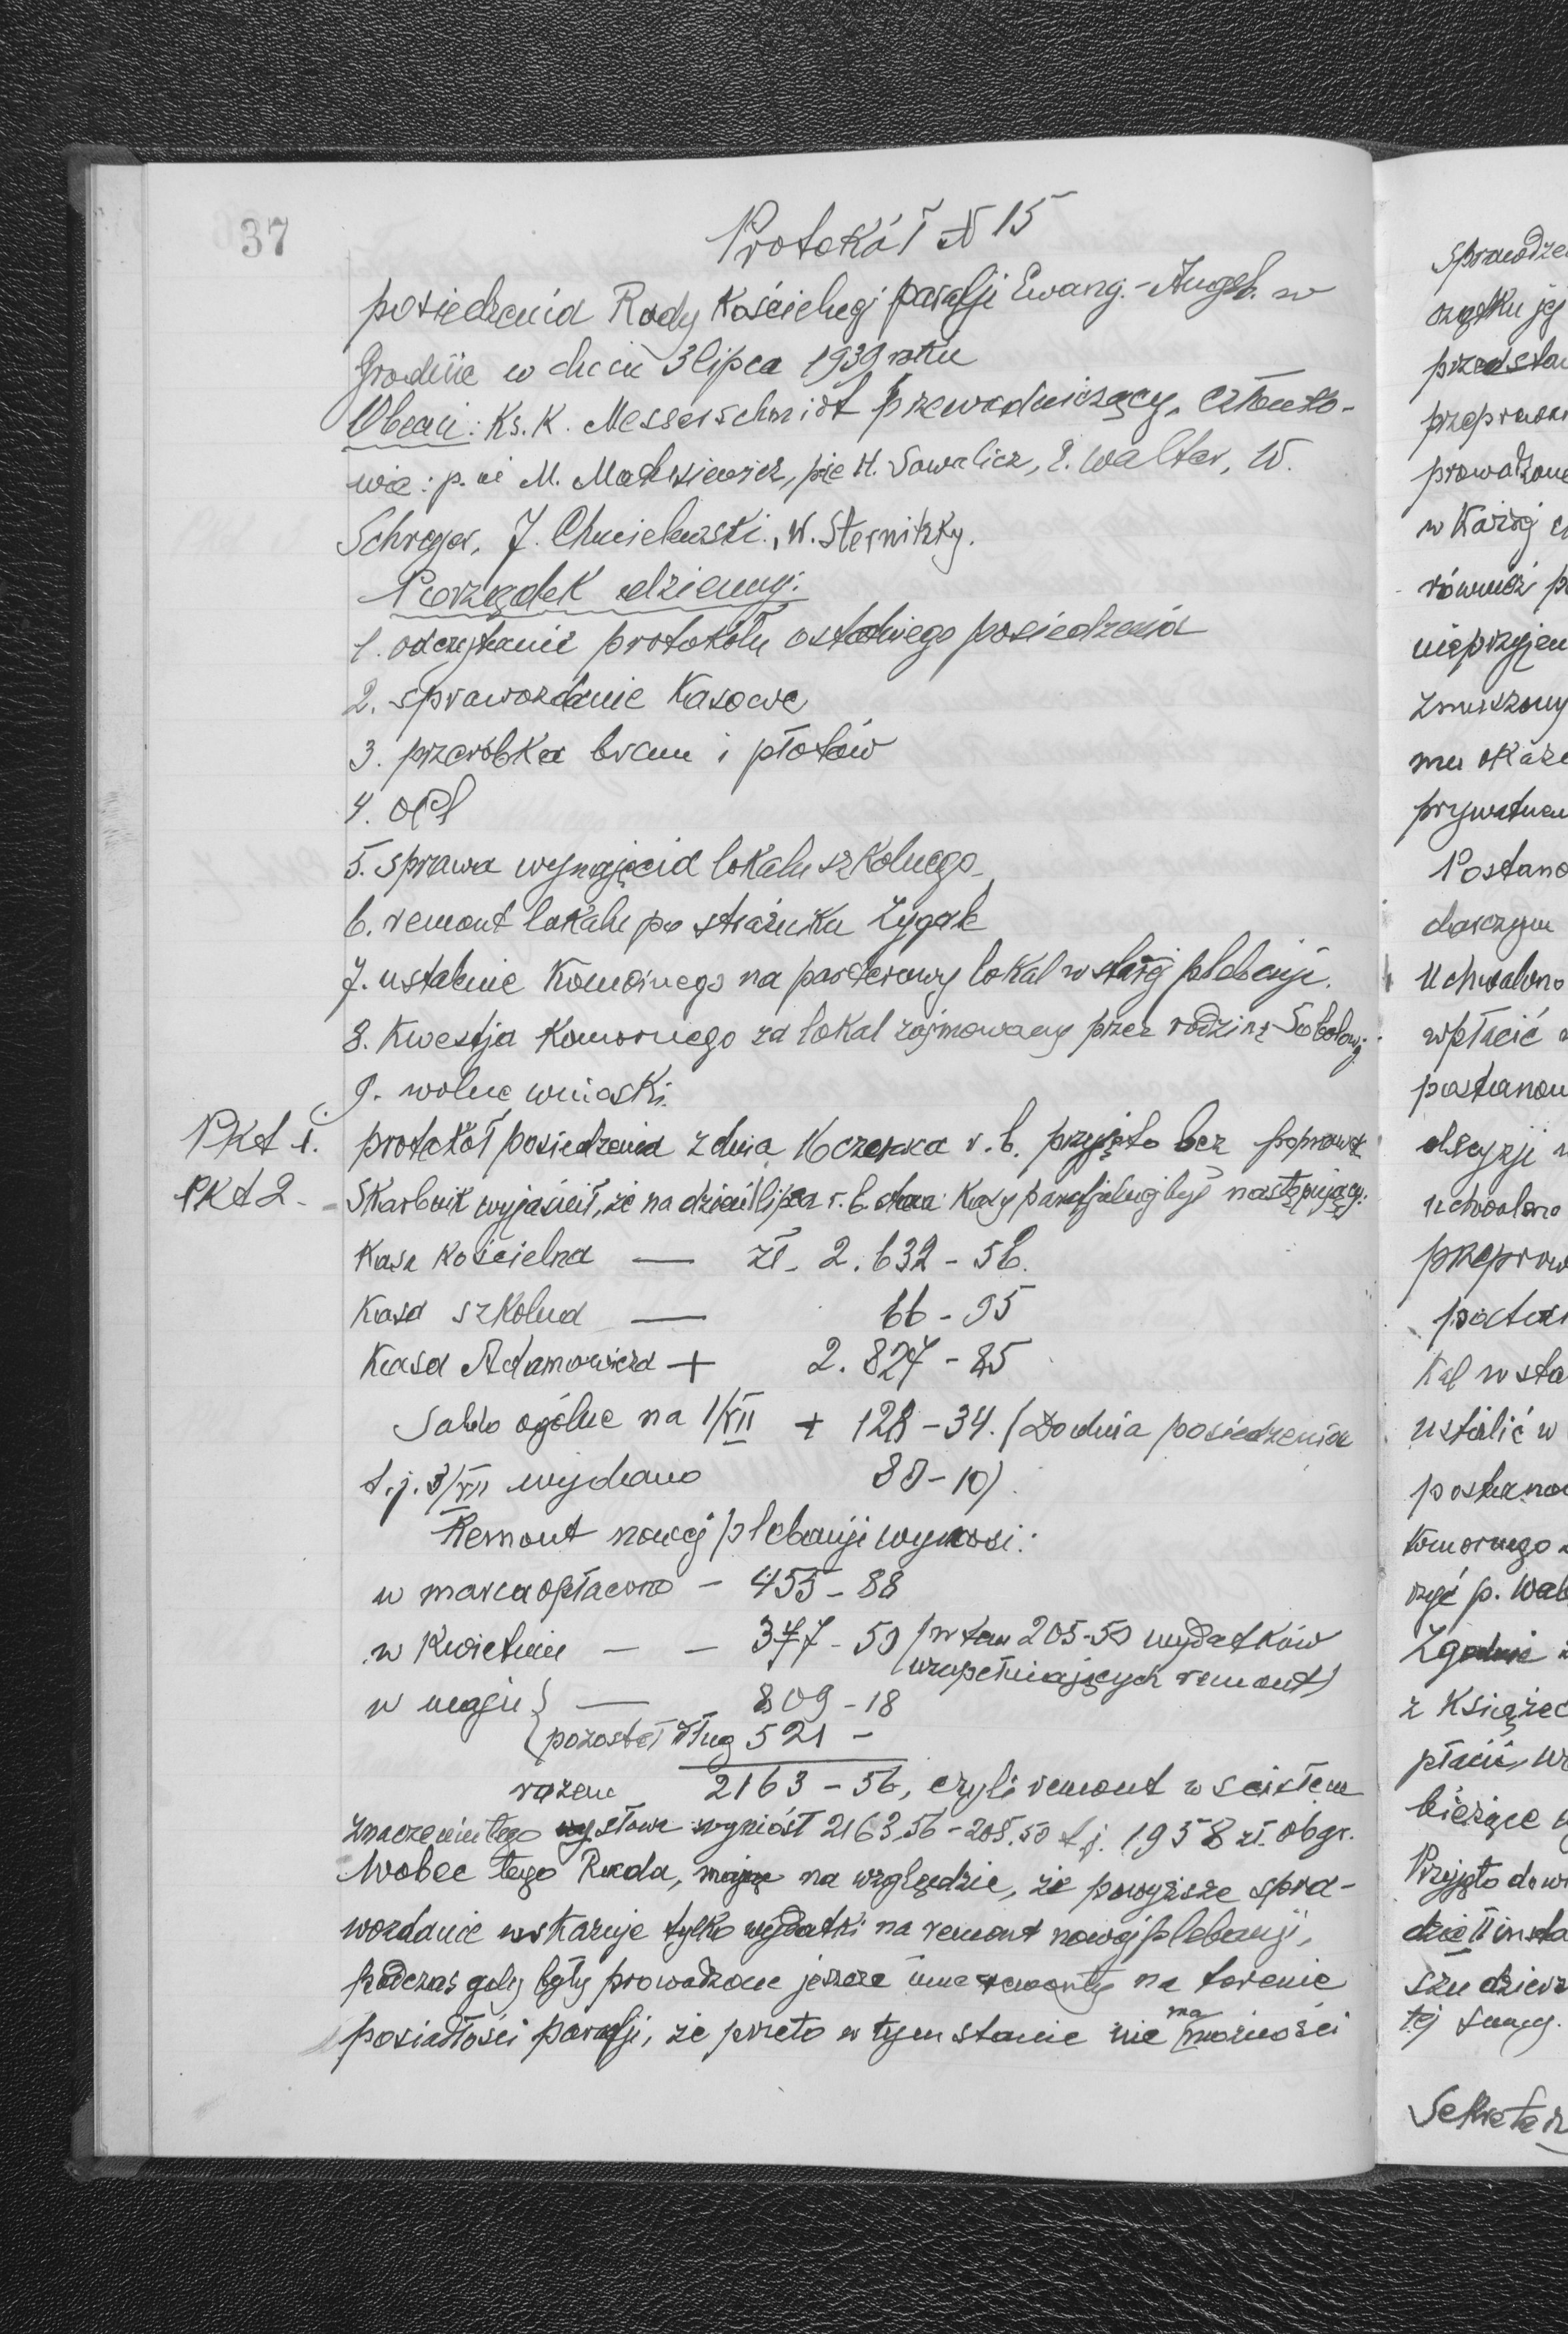 37
Protokół № 15
posiedzenia Rady Kościelnej parafji Ewang.-Augsb. w
Grodnie w dniu 3 lipca 1939 roku
Obecni: Ks. K. Messerschmidt przewodniczący, członko-
wie: p. M. Makisiewicz, H. Sawalicz, E. Walter, W.
Schreyer, J. Chmielewski, W. Sternitzky.
Porządek dzienny:
1. odczytanie protokółu ostatniego posiedzenia
2. sprawozdanie Kasowe
3. przeróbka bram i płotów
4. OPL
5. sprawa wynajęcia lokalu szkolnego
6. remont lokalu po strażniku Zygale
7. ustalenie Komornego na parterowy lokal w starej plebanji.
8. Kwestja Komornego za lokal zajmowany przez rodzinę Sobolowej.
9. wolne wnioski.
PKt 1. protokół posiedzenia z dnia 16 czerwca r.b. przyjęto bez poprawek
PKt 2 - Skarbnik wyjaśnił, że na dzień 1 lipca r.b. stan Kasy parafjalnej był następujący:
Kasa Kościelna — zł. 2.632 - 56.
Kasa szkolna — 66 - 95
Kasa Adamowicza + 2.827 - 85
Saldo ogólne na 1/VII + 128 - 34. (Do dnia posiedzenia
t.j. 3/VII wydano 80 - 10).
Remont nowej plebanji wynosi:
w marcu opłacono - 455 - 88
w Kwietniu - - 377 - 50 (w tem 205-50 wydatków
uzupełniających remont)
w maju } — 809 - 18
{ pozostał dług 521 -
razem 2163 - 56, czyli remont w ścisłem
znaczeniu tego słowa wyniósł 2163,56 - 205.50 t.j. 1958 zł. 06 gr.
Wobec tego Rada, mając na względzie, że powyższe spra-
wozdanie wskazuje tylko wydatki na remont nowej plebanji,
podczas gdy były prowadzone jeszcze inne remonty na terenie
posiadłości parafji, że przeto w tym stanie nie ma możności
sprawdze
przedstaw
prowadzone
w Każdej
również
zmuszony
mu okaże
Postano
Uchwalono
wpłacić
postanow
decyzji
uchwalono
przeprow
Kal w sta
ustalić w
postanow
Komornego
p. Wal
Zgodnie
z Książec
płacić
bieżące
Przyjęto do w
tej sumy.
Sekretarz